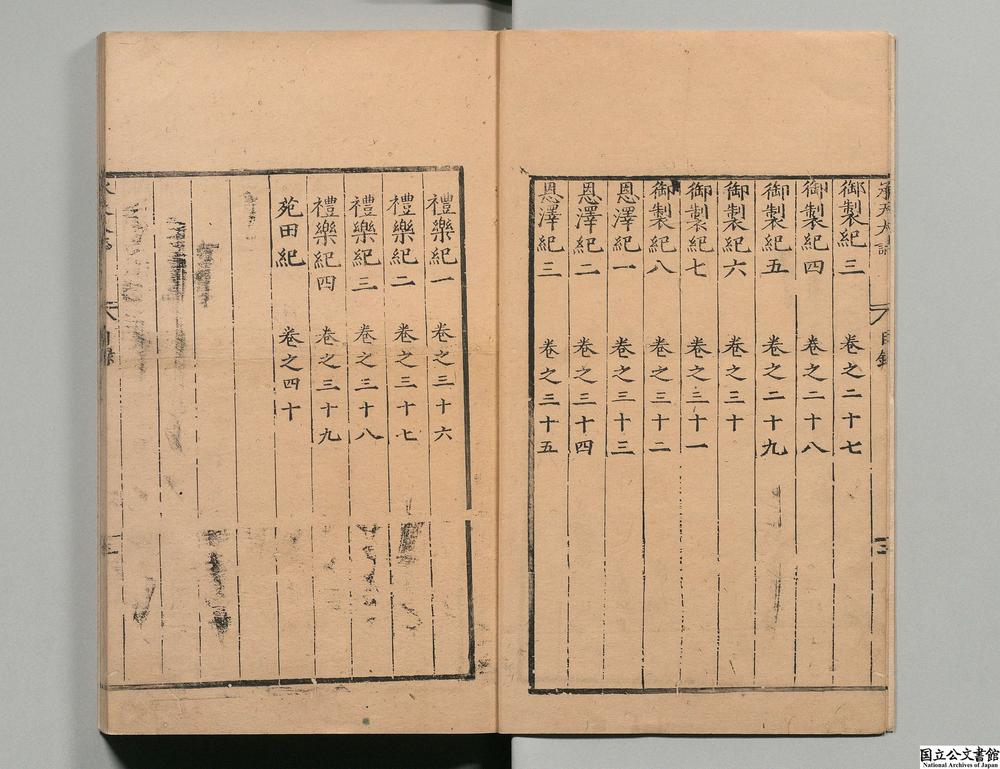 承天大誌 目錄 三
御製紀三 卷之二十七
御製紀四 卷之二十八
御製紀五 卷之二十九
御製紀六 卷之三十
御製紀七 卷之三十一
御製紀八 卷之三十二
恩澤紀一 卷之三十三
恩澤紀二 卷之三十四
恩澤紀三 卷之三十五
禮樂紀一 卷之三十六
禮樂紀二 卷之三十七
禮樂紀三 卷之三十八
禮樂紀四 卷之三十九
苑田紀 卷之四十
国立公文書館
National Archives of Japan